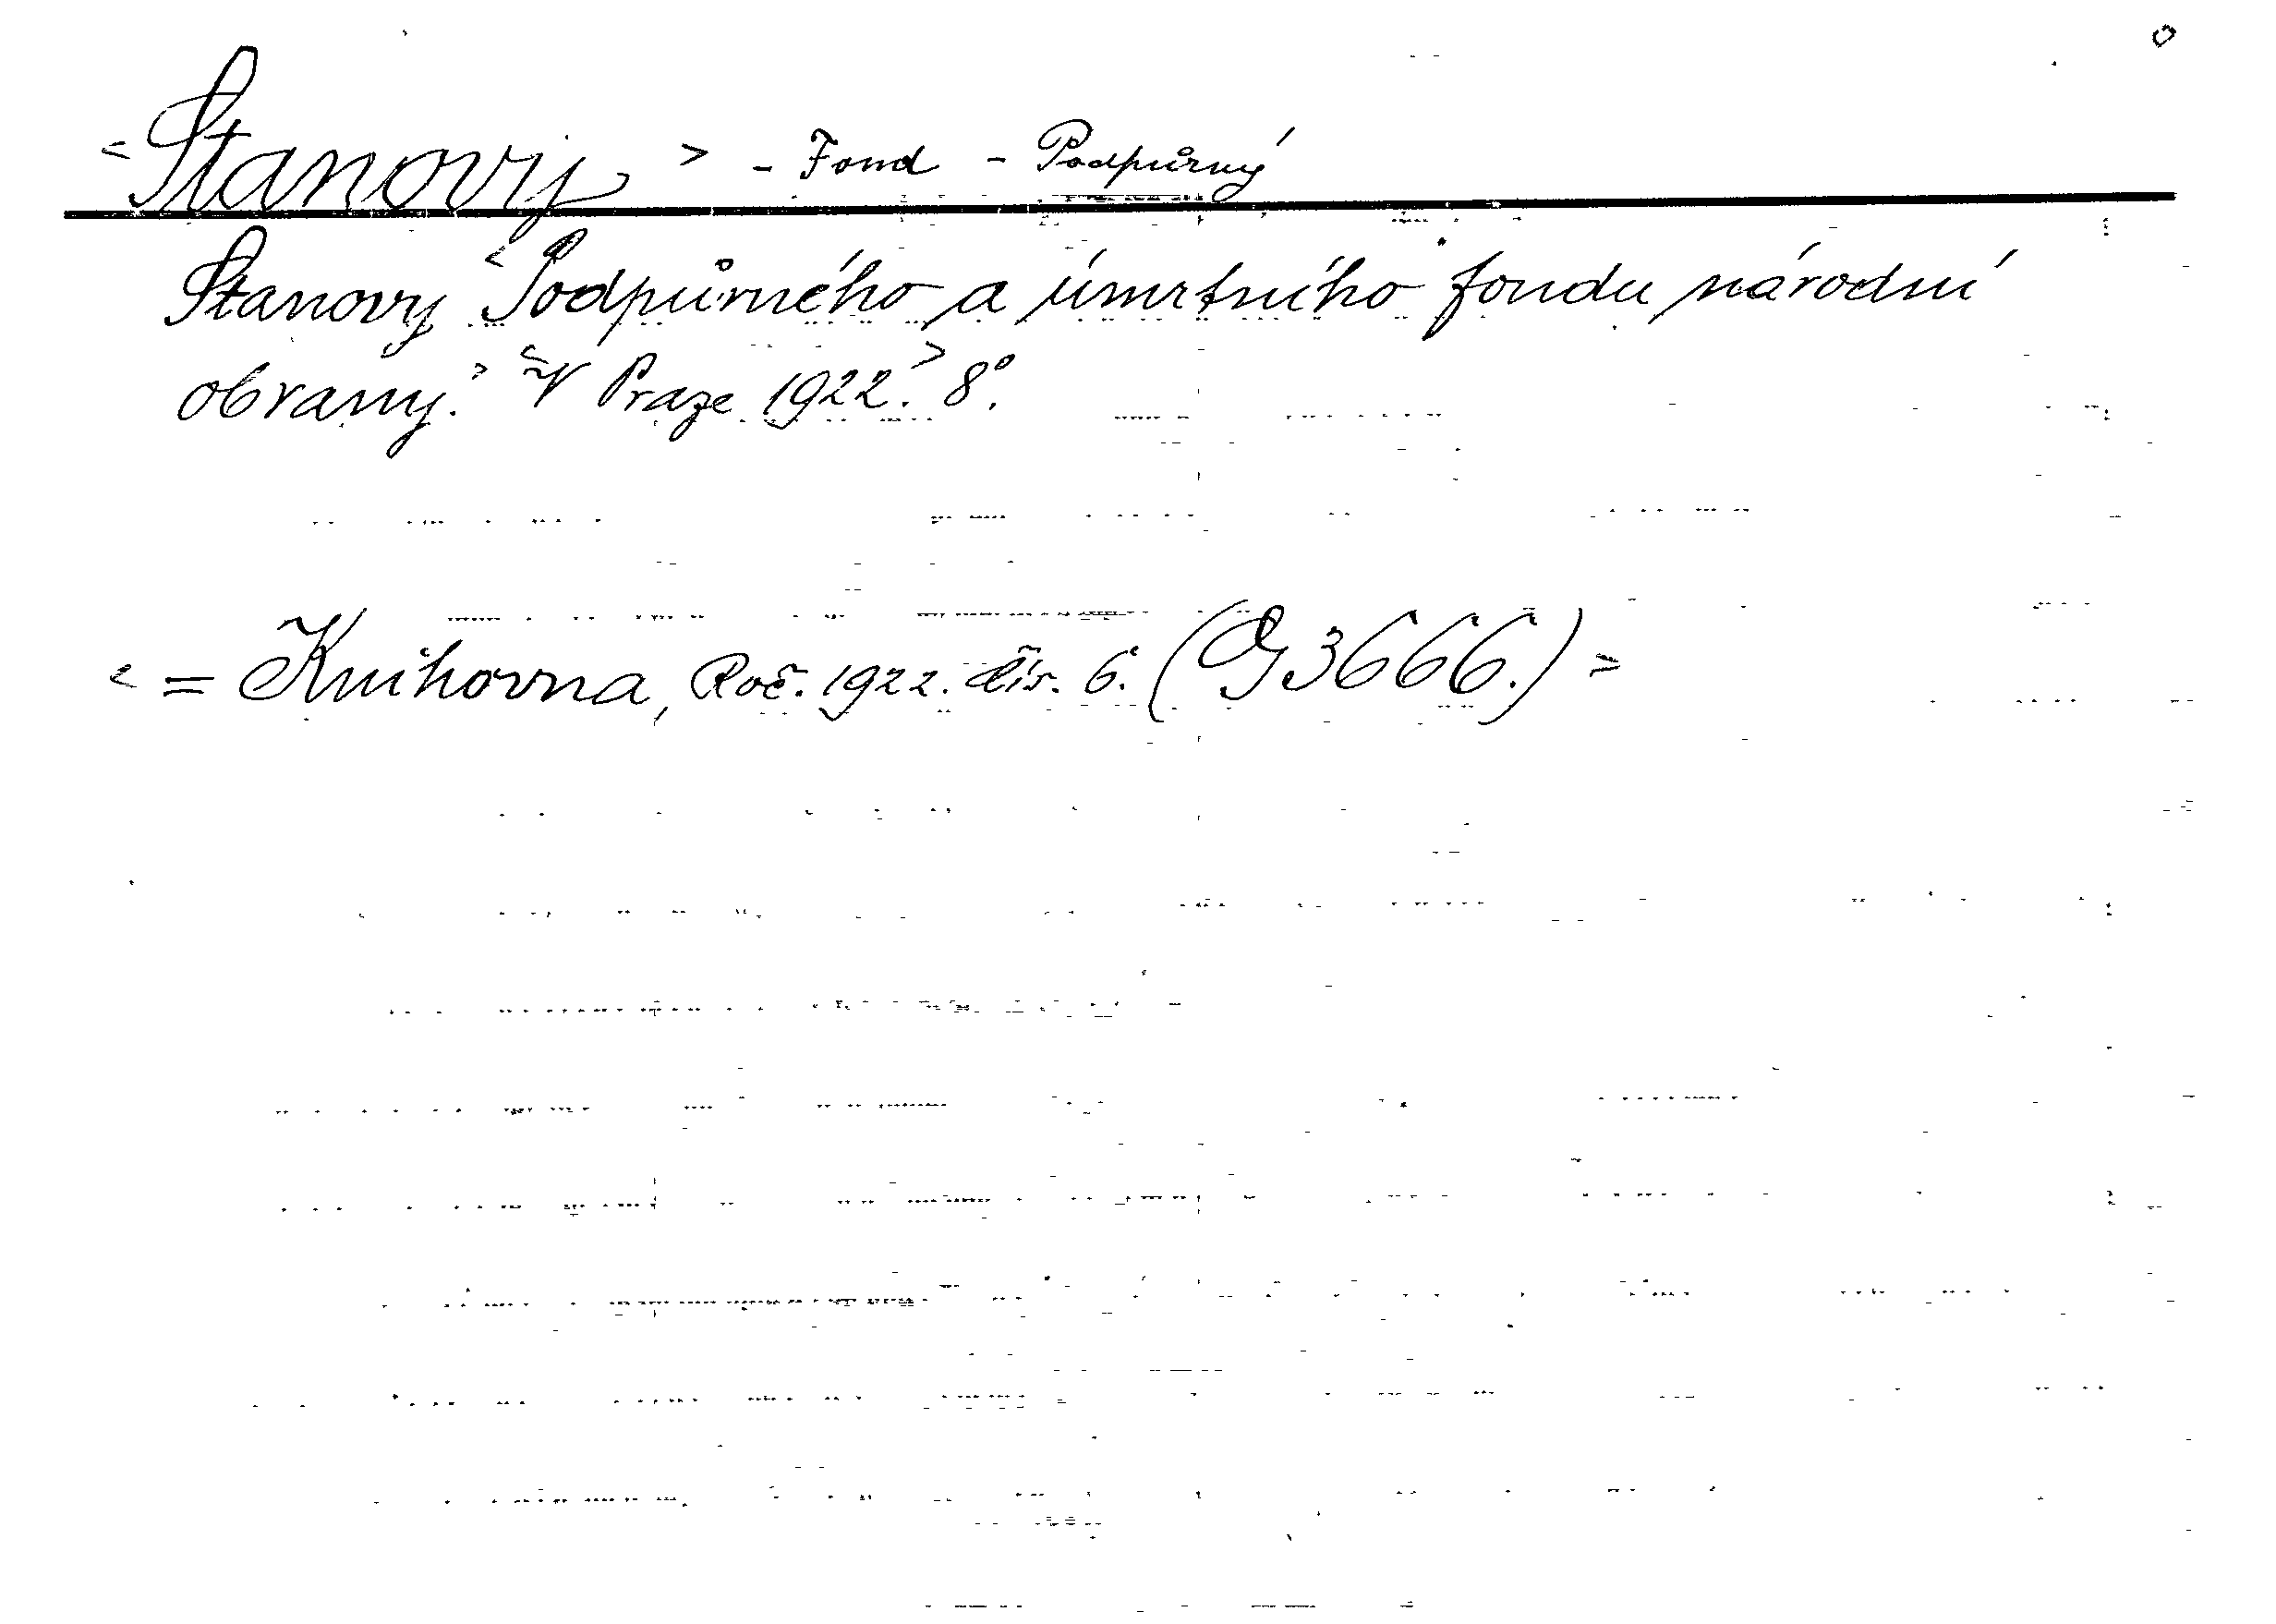 <Stanovy> - Fond - Podpůrný
Stanovy <Podpůrného a úmrtního fondu národní
obrany.> <V Praze 1922.> 8°.
< = Knihovna, Roč. 1922. čís. 6. (G 3666.) >